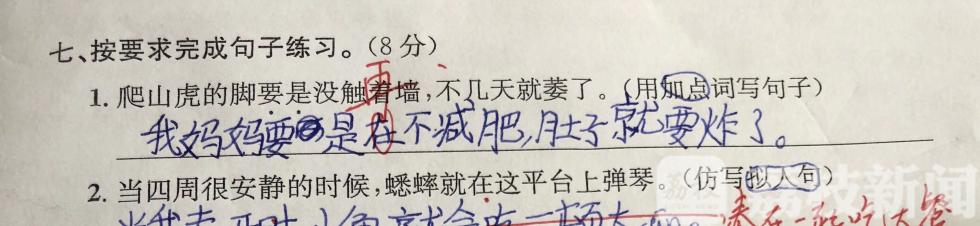 七、按要求完成句子练习。(8分)
再
1. 爬山虎的脚要是没触着墙,不几天就萎了。(用加点词写句子)
我妈妈要是在不减肥,肚子就要炸了。
2. 当四周很安静的时候,蟋蟀就在这平台上弹琴。(仿写拟人句)
荔枝新闻